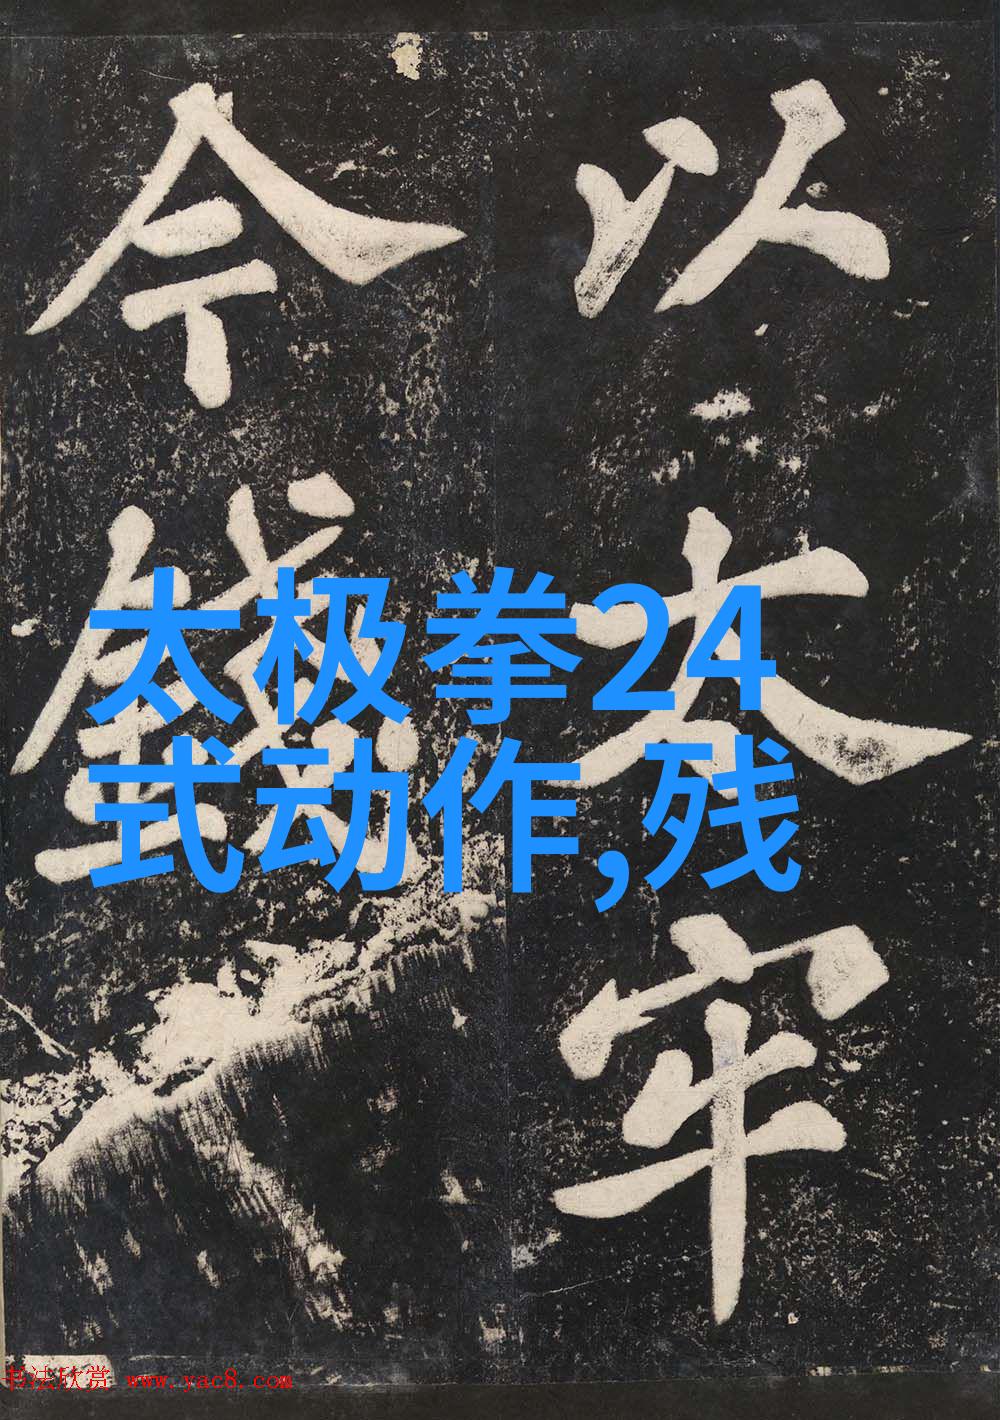 以太牢
今錢
太极拳24
式动作,残
书法欣赏 www.yac8.com